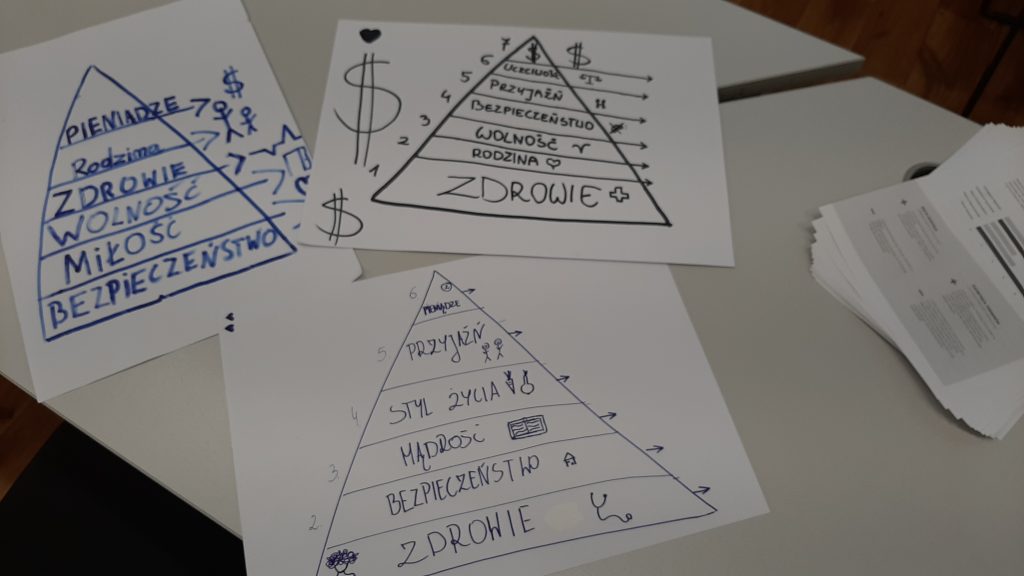 PIENIĄDZE
$
Rodzina
ZDROWIE
WOLNOŚĆ
MIŁOŚĆ
BEZPIECZEŃSTWO
$
$
7
$
$
6
UCZCIWOŚĆ
5
PRZYJAŹŃ
4
BEZPIECZEŃSTWO
3
WOLNOŚĆ
2
RODZINA
1
ZDROWIE
6
PIENIĄDZE
5
PRZYJAŹŃ
4
STYL ŻYCIA
3
MĄDROŚĆ
2
BEZPIECZEŃSTWO
ZDROWIE